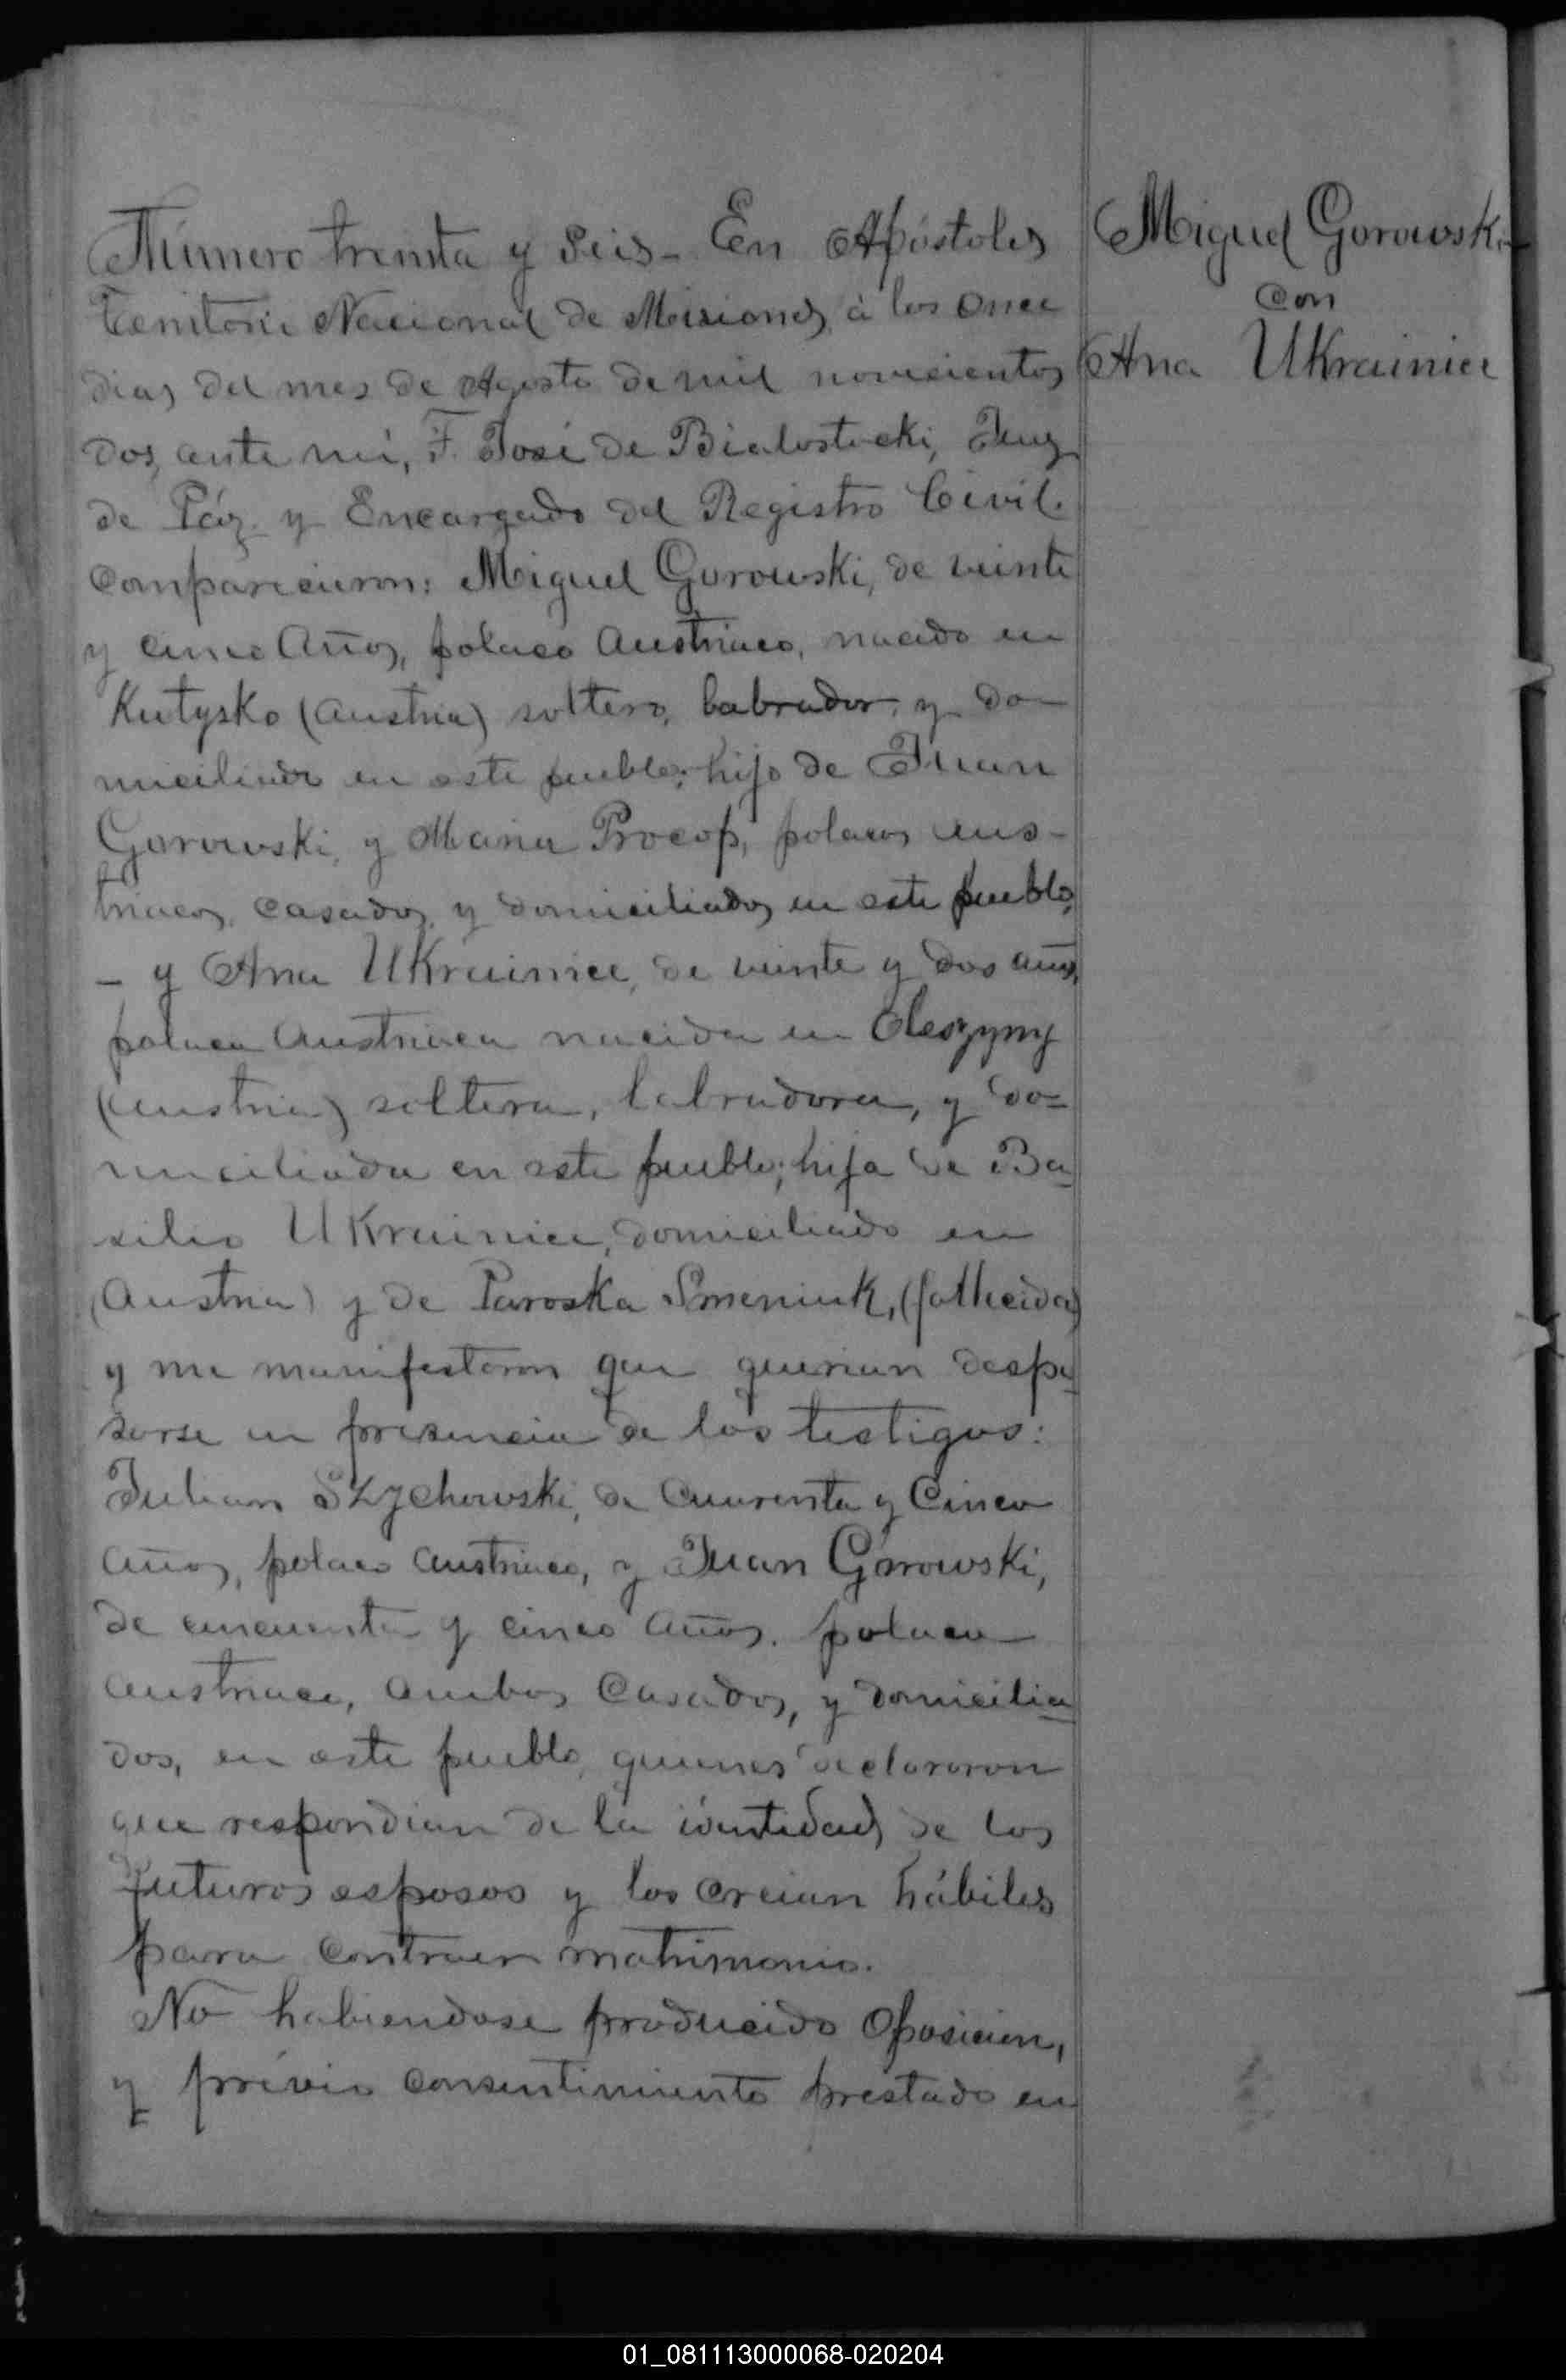 Número treinta y seis - En Apóstoles
Territorio Nacional de Misiones, á los once
dias del mes de Agosto de mil novecientos
dos, ante mi, F. José de Bialostocki, Juez
de Páz y Encargado del Registro Civil.
Comparecieron: Miguel Gorowski, de veinte
y cinco años, polaco austriaco, nacido en
Kutysko (Austria) soltero, labrador, y do-
miciliado en este pueblo; hijo de Juan
Gorowski, y Maria Procop, polacos aus-
triacos, casados, y domiciliados en este pueblo,
- y Ana UKrainiec, de veinte y dos años,
polaca austriaca nacida en Oleszyny
(Austria) soltera, labradora, y do-
miciliada en este pueblo; hija de Ba-
silio UKrainiec, domiciliado en
(Austria) y de Paroska Smeniuk, (fallecida)
y me manifestaron que querian despo-
sarse en presencia de los testigos:
Julian Szychowski, de cuarenta y cinco
años, polaco austriaco, y Juan Gorowski,
de cincuenta y cinco años. polaco
austriaco, ambos casados, y domicilia-
dos, en este pueblo, quienes declararon
que respondian de la identidad de los
futuros esposos y los creian hábiles
para contraer matrimonio.
No habiendose producido oposicion,
y prévio consentimiento prestado en
Miguel Gorowski
con
Ana UKrainiec
01_081113000068-020204